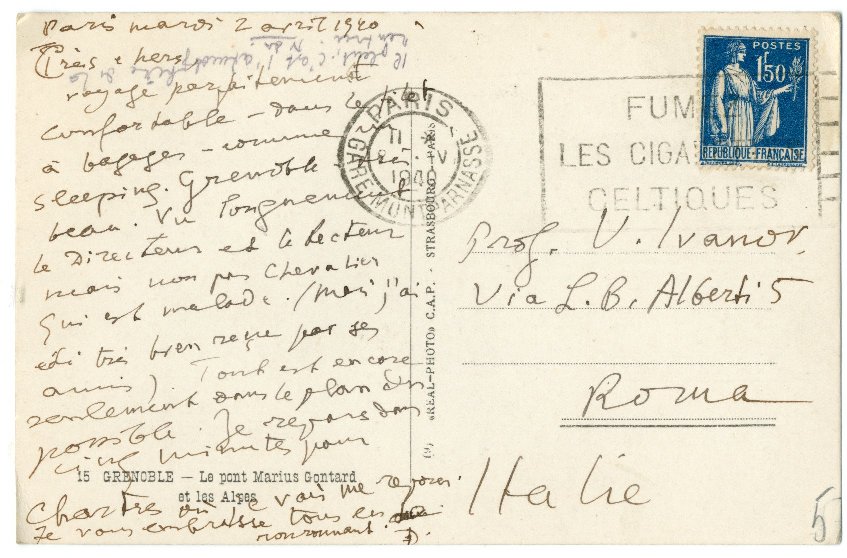 Paris mardi 2 avril 1940
Très chers
Il pleut, c'est l'atmosphère de la
rentrée
voyage parfaitement
confortable – dans le filet
à bagages – comme un
sleeping. Grenoble très
beau. Vu longuement
le Directeur et le Recteur
mais non pas Chevalier
qui est malade. (mais j'ai
été très bien reçu par ses
amis). Tout est encore
seulement dans le plan du
possible. Je repars dans
cinq minutes pour
Chartres où je vais me reposer.
Je vous embrasse tous en
ronronnant.
15 GRENOBLE – Le pont Marius Gontard
et les Alpes
(9) «REAL-PHOTO» C.A.P. - STRASBOURG-PARIS
PARIS
GARE MONTPARNASSE
IV
1940
FUM
LES CIGA
CELTIQUES
POSTES
1f50
REPUBLIQUE-FRANÇAISE
Prof. V. Ivanov.
Via L. B. Alberti 5
Roma
Italie
5